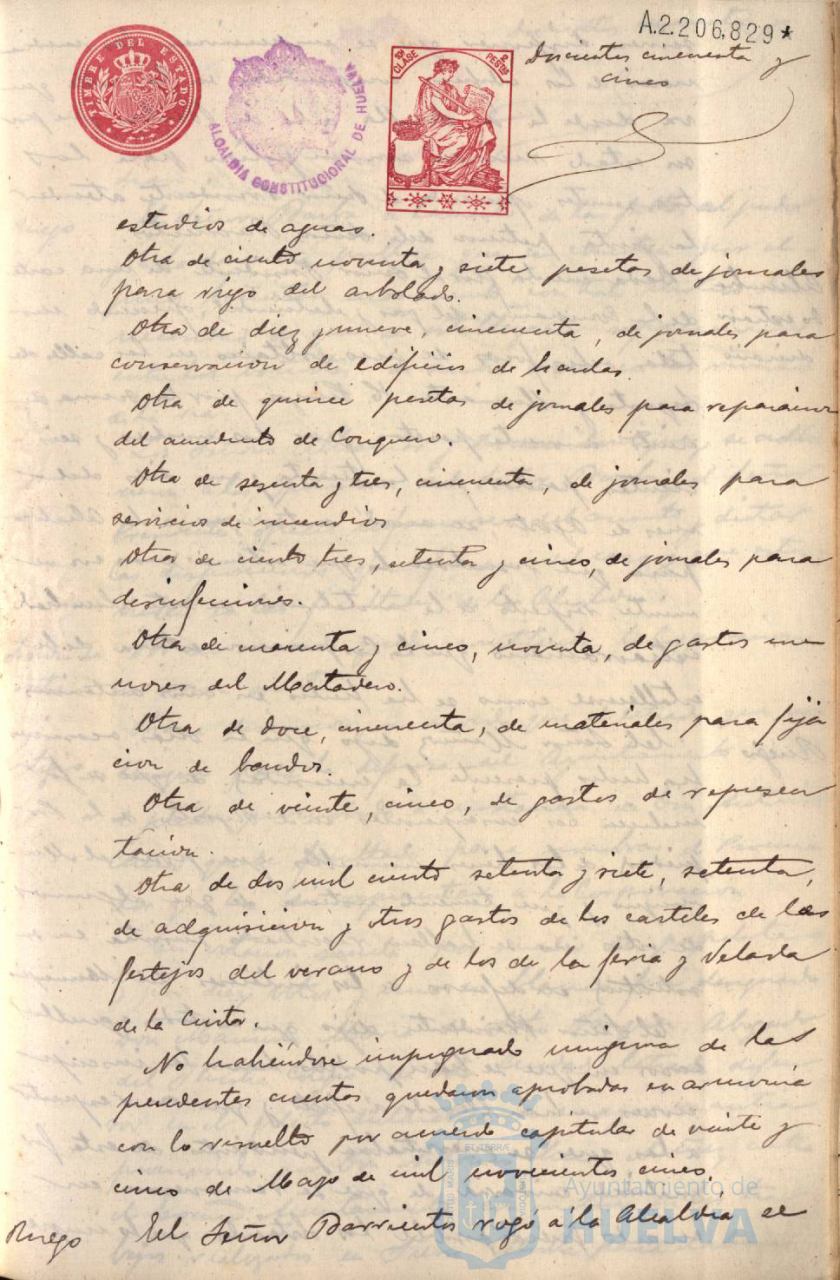 A.2.206.829*
TIMBRE DEL ESTADO
ALCALDIA CONSTITUCIONAL DE HUELVA
CLASE
PESETAS
Doscientos cincuenta y
cinco
estudios de aguas.
Otra de ciento noventa y siete pesetas de jornales
para riego del arbolado.
Otra de diez y nueve, cincuenta, de jornales para
conservacion de edificios de
Otra de quince pesetas de jornales para reparacion
del acueducto de Conquero.
Otra de sesenta y tres, cincuenta, de jornales para
servicios de incendios
Otra de ciento tres, setenta y cinco, de jornales para
desinfecciones.
Otra de cuarenta y cinco, noventa, de gastos me
nores del Matadero.
Otra de doce, cincuenta, de materiales para fija
cion de bandos.
Otra de veinte, cinco, de gastos de represen
tacion.
Otra de dos mil ciento setenta y siete, setenta,
de adquisicion y otros gastos de los carteles de los
festejos del verano y de los de la feria y Velada
de la Cinta.
No habiéndose impugnado ninguna de las
precedentes cuentas quedaron aprobadas en armonia
con lo resuelto por acuerdo capitular de veinte y
cinco de Mayo de mil novecientos cinco.
Ruego El Señor Barrientos rogó á la Alcaldia, se
Ayuntamiento de
HUELVA